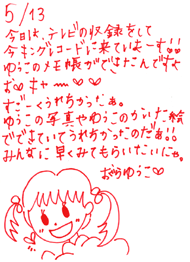 5/13
今日は、テレビの収録をして
今キングレコードに来ていまーす!!
ゆうこのメモ帳ができたんですぅ
お♡キャー♡♡
すごーくうれちかったぁ。
ゆうこの写真やゆうこのかいた絵
でできていてうれちかったのだぁ!!
みんなに早くみてもらいたいにゃ。
おぐらゆうこ♡